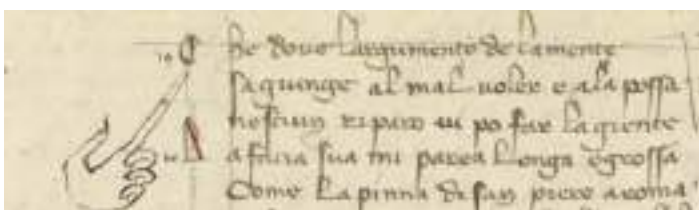 C he dove largumento de lamente
sagiunge al mal voler e ala possa
nessun riparo vi po far la giente
L a faccia sua mi parea longa e grossa
Come la pinna di san piero aroma